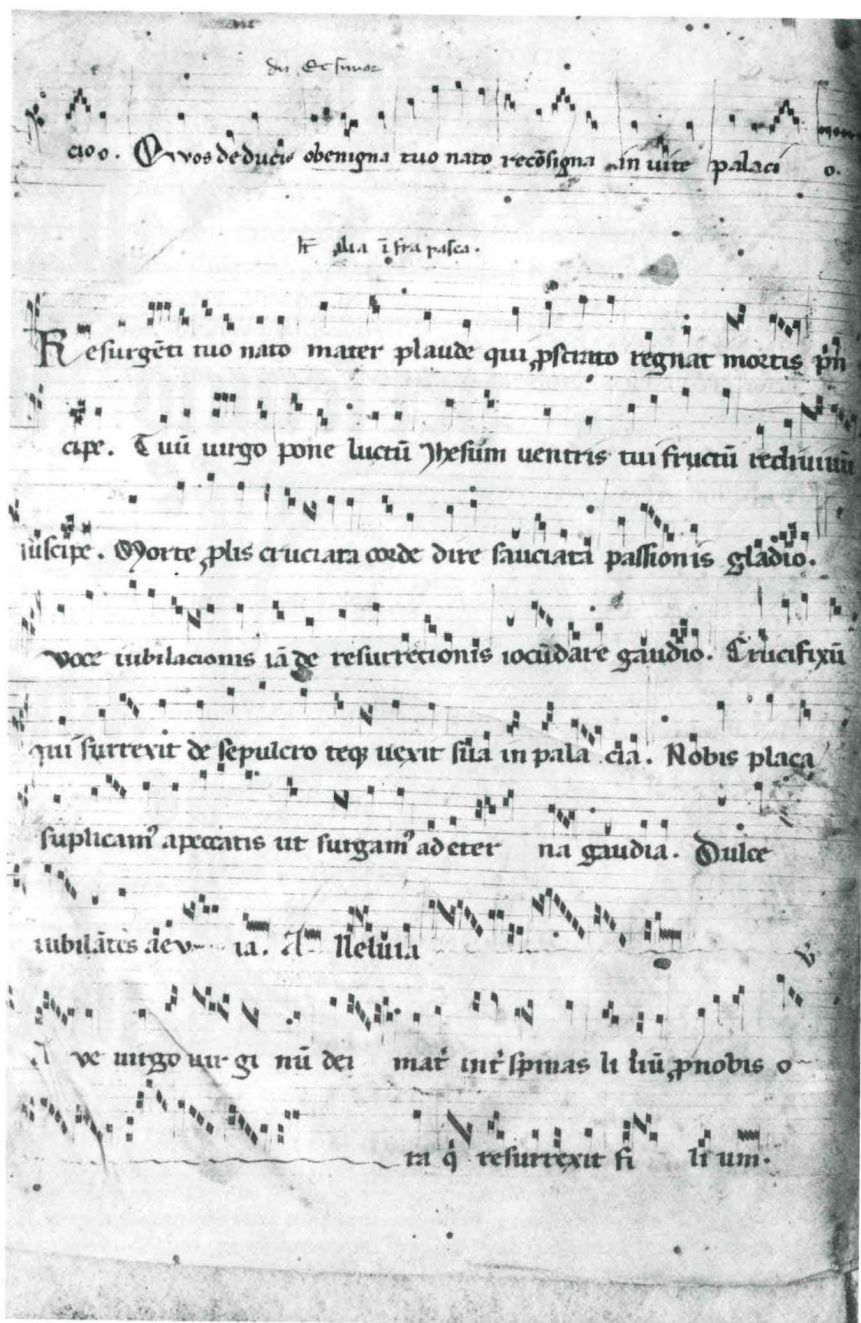 cio o. Quos deducis obenigna tuo nato recōsigna in uite palaci o.
alia īfra pasca.
Resurgēti tuo nato mater plaude qui ꝓstrato regnat mortis pⁱn
cipe. Tuū uirgo pone luctū Jhesum uentris tui fructū rediuiuū
suscipe. Morte ꝓlis cruciata corde dire sauciata passionis gladio.
voce iubilacionis iā de resurrectionis iocūdare gaudio. Crucifixū
qui surrexit de sepulcro teqꝫ uexit sua in pala cia. Nobis placa
suplicamꝰ apeccatis ut surgamꝰ ad eter na gaudia. Dulce
iubilātes aev ia. A lleluia
A ve uirgo uir gi nū dei mat͛ int͛ spinas li liū ꝓnobis o
ra q̄ resurrexit fi li um.